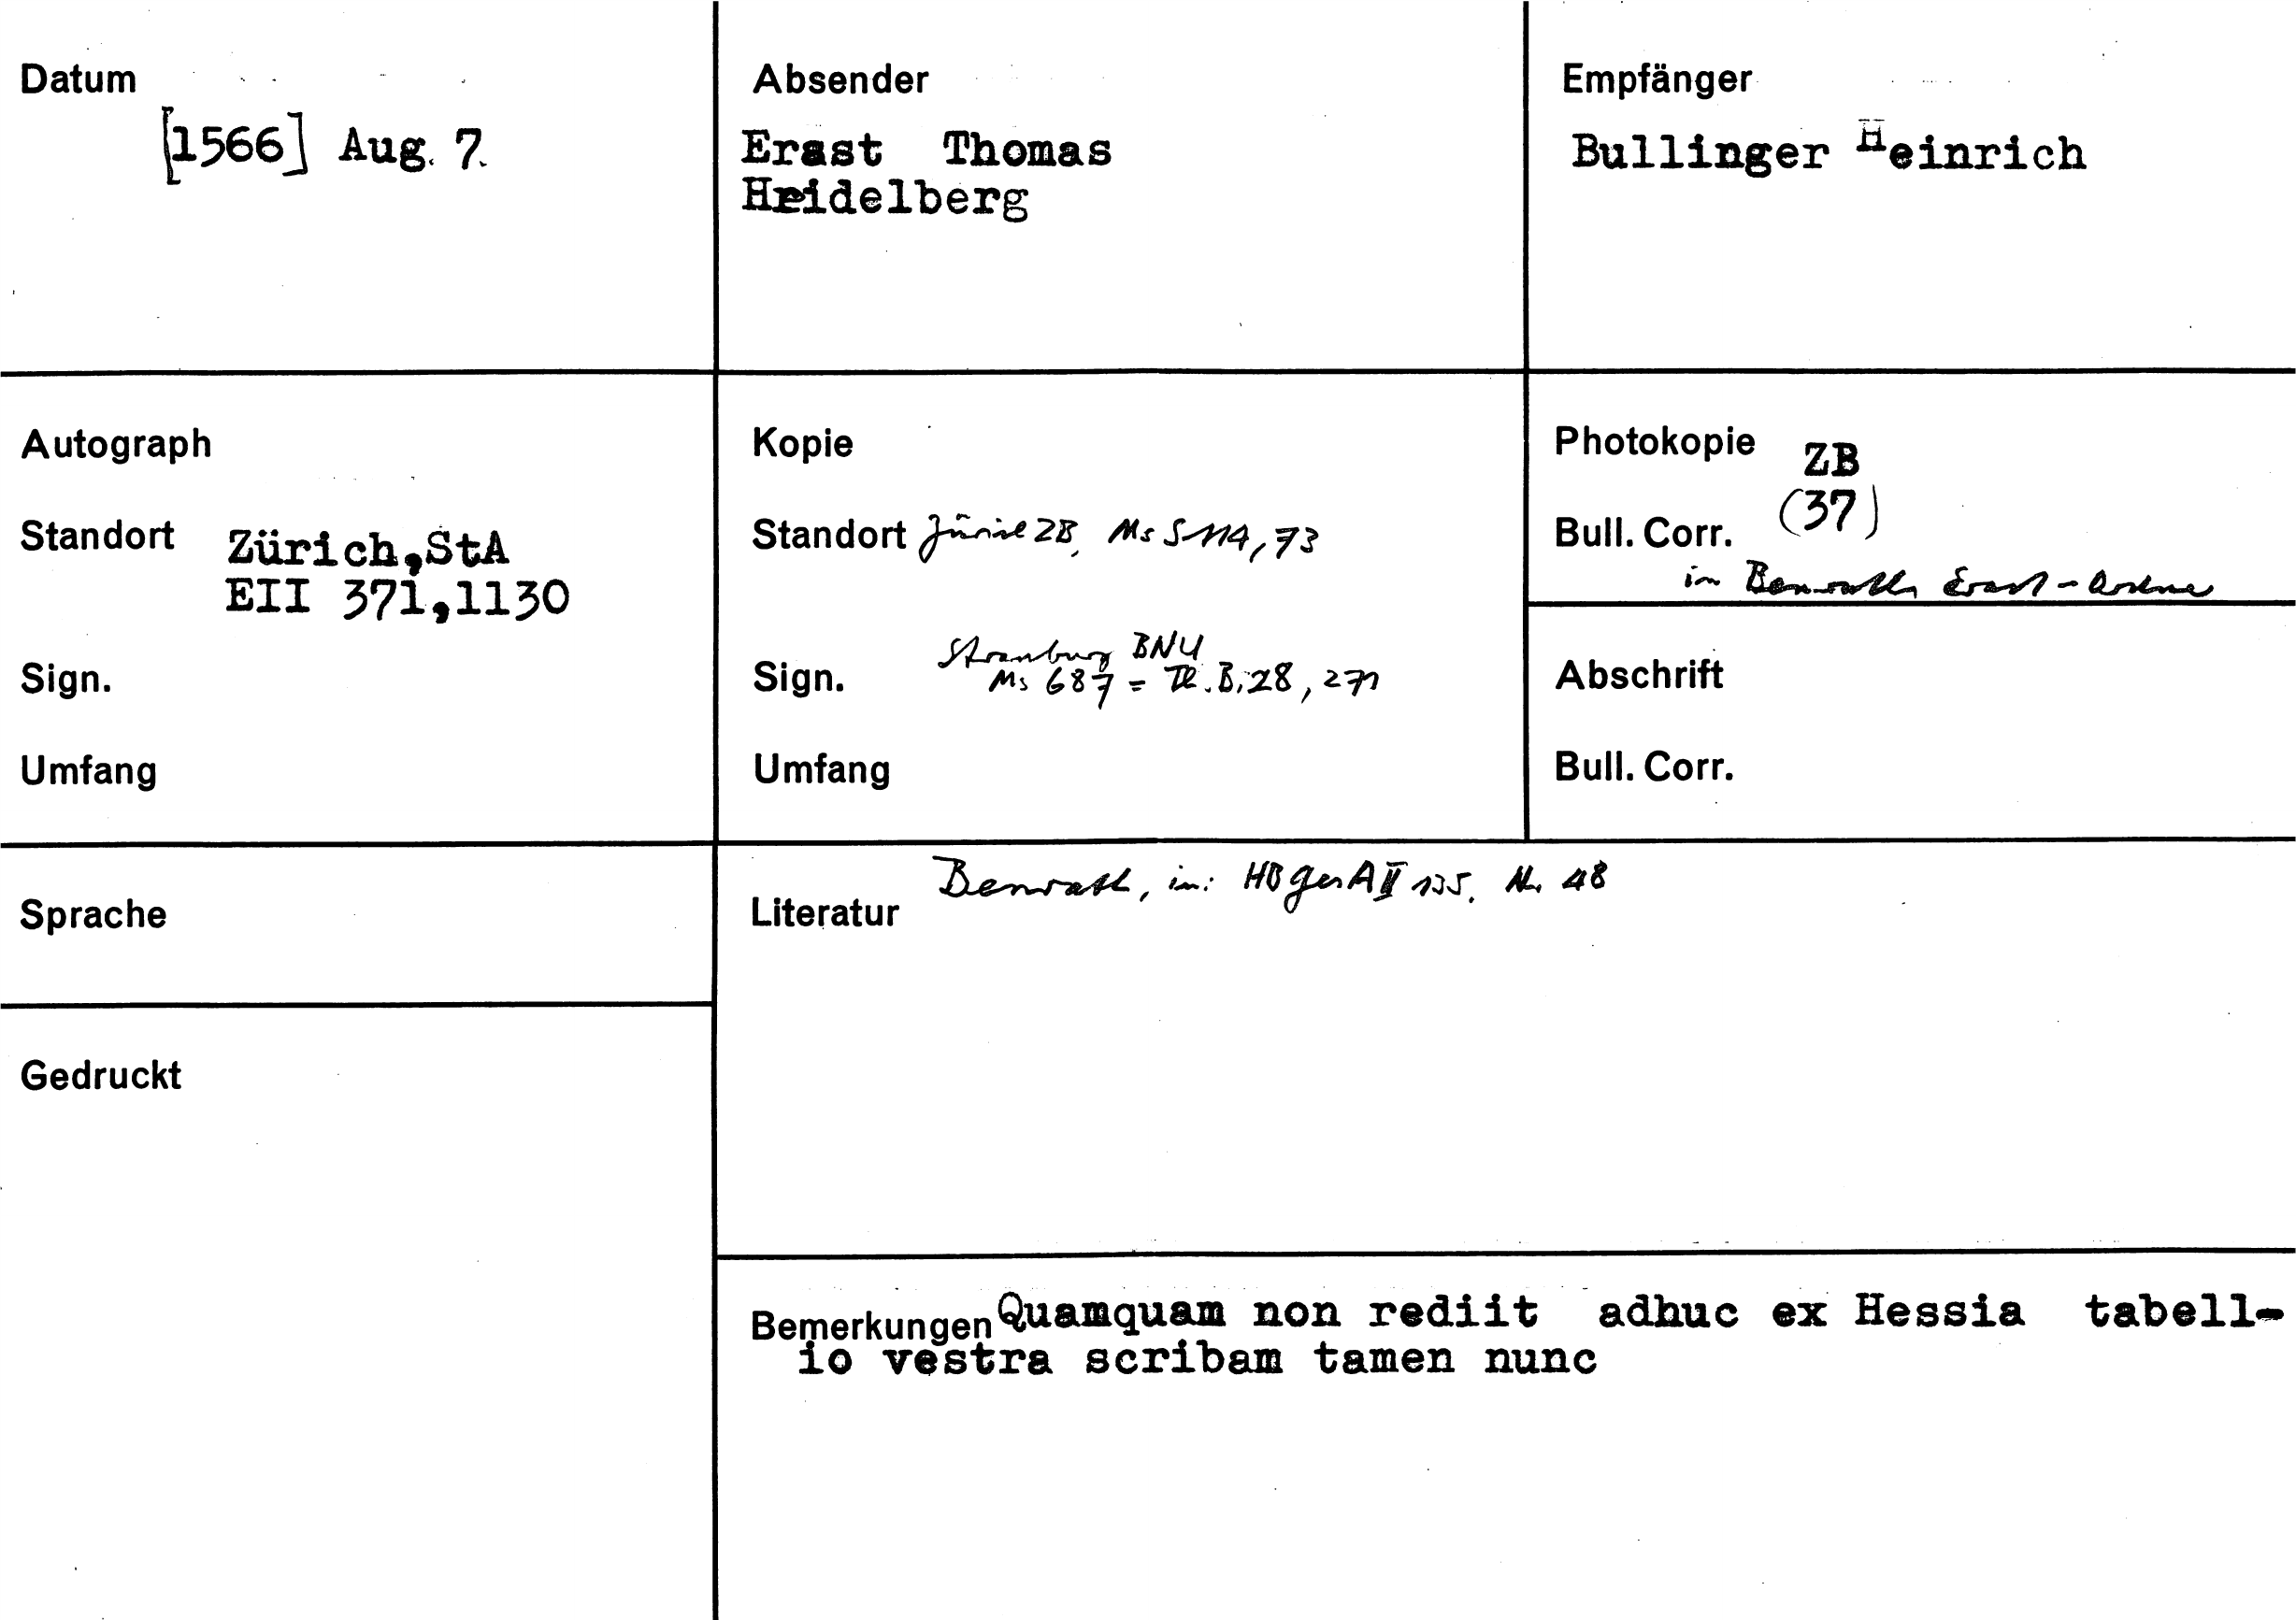 Datum
[1566] Aug. 7.
Absender
Erast Thomas
Heidelberg
Empfänger
Bullinger Heinrich
Autograph
Standort Zürich,StA
EII 371,1130
Sign.
Umfang
Kopie
Standort Zürich ZB, Ms S 114, 73
Strassburg BNU
Sign. Ms 687 = Th. B. 28, 271
Umfang
Photokopie ZB
(37)
Bull. Corr.
in Benrath, Erast-Ordner
Abschrift
Bull. Corr.
Sprache
Gedruckt
Benrath, in: HBGesA II 135, Nr. 48
Literatur
Bemerkungen Quamquam non rediit adhuc ex Hessia tabell-
io vestra scribam tamen nunc